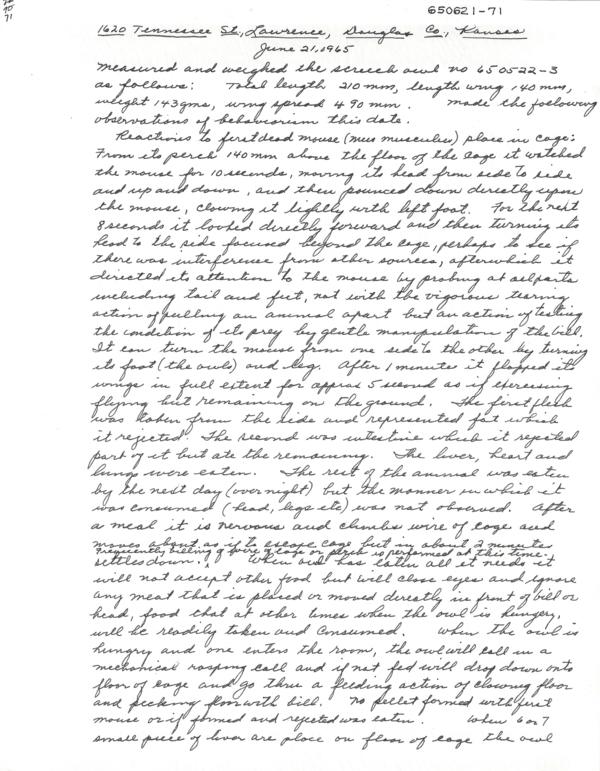 70
71
650621-71
1620 Tennessee St., Lawrence, Douglas Co., Kansas
June 21, 1965
Measured and weighed the screech owl no 650522-3
as follows: Total length 210 mm, length wing 140 mm,
weight 143 gms, wing spread 490 mm. Made the following
observations of behaviorism this date.
Reactions to first dead mouse (mus musculus) place in cage:
From its perch 140 mm above the floor of the cage it watched
the mouse for 10 seconds, moving its head from side to side
and up and down, and then pounced down directly upon
the mouse, clawing it lightly with left foot. For the next
8 seconds it looked directly forward and then turning its
head to the side focused beyond the cage, perhaps to see if
there was interference from other sources, after which it
directed its attention to the mouse by probing at all parts
including tail and feet, not with the vigorous tearing
action of pulling an animal apart but an action of testing
the condition of its prey by gentle manipulation of the bill.
It can turn the mouse from one side to the other by turning
its foot (the owls) and leg. After 1 minute it flapped its
wings in full extent for approx 5 second as if exercising
flying but remaining on the ground. The first flesh
was taken from the side and represented fat which
it rejected. The second was intestine which it rejected
part of it but ate the remaining. The liver, heart and
lungs were eaten. The rest of the animal was eaten
by the next day (over night) but the manner in which it
was consumed (head, legs etc) was not observed. After
a meal it is nervous and climbs wire of cage and
moves about as if to escape cage but in about 2 minutes
Frequently billing of wire of cage or perch is performed at this time.
settles down. When owl has eaten all it needs it
will not accept other food but will close eyes and ignore
any meat that is placed or moved directly in front of bill or
head, food that at other times when the owl is hungry,
will be readily taken and consumed. When the owl is
hungry and one enters the room, the owl will call in a
mechanical rasping call and if not fed will drop down onto
floor of cage and go thru a feeding action of clawing floor
and pecking floor with bill. No pellet formed with first
mouse or if formed and rejected was eaten. When 6 or 7
small piece of liver are place on floor of cage the owl